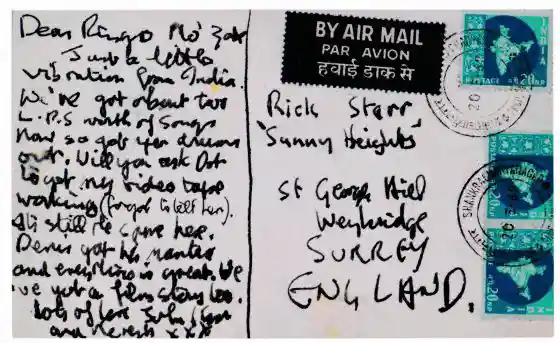 Dear Ringo Mo' Zak
Just a little
vibration from India.
We've got about two
L.P.S worth of songs
now so get yer drums
out. Will you ask Dot
to get my video tape
working (forgot to tell her).
still the same here.
Denis got his mantra
and everything is great. We
've got a film story too.
lots of love John
and x x x
BY AIR MAIL
PAR AVION
हवाई डाक से
Rick Starr
'Sunny Heights'
St George Hill
Weybridge
SURREY
ENGLAND.
INDIA
POSTAGE 20 NP
SHANKRACHARYANAGAR
20
INDIA
POSTAGE
INDIA
20 NP